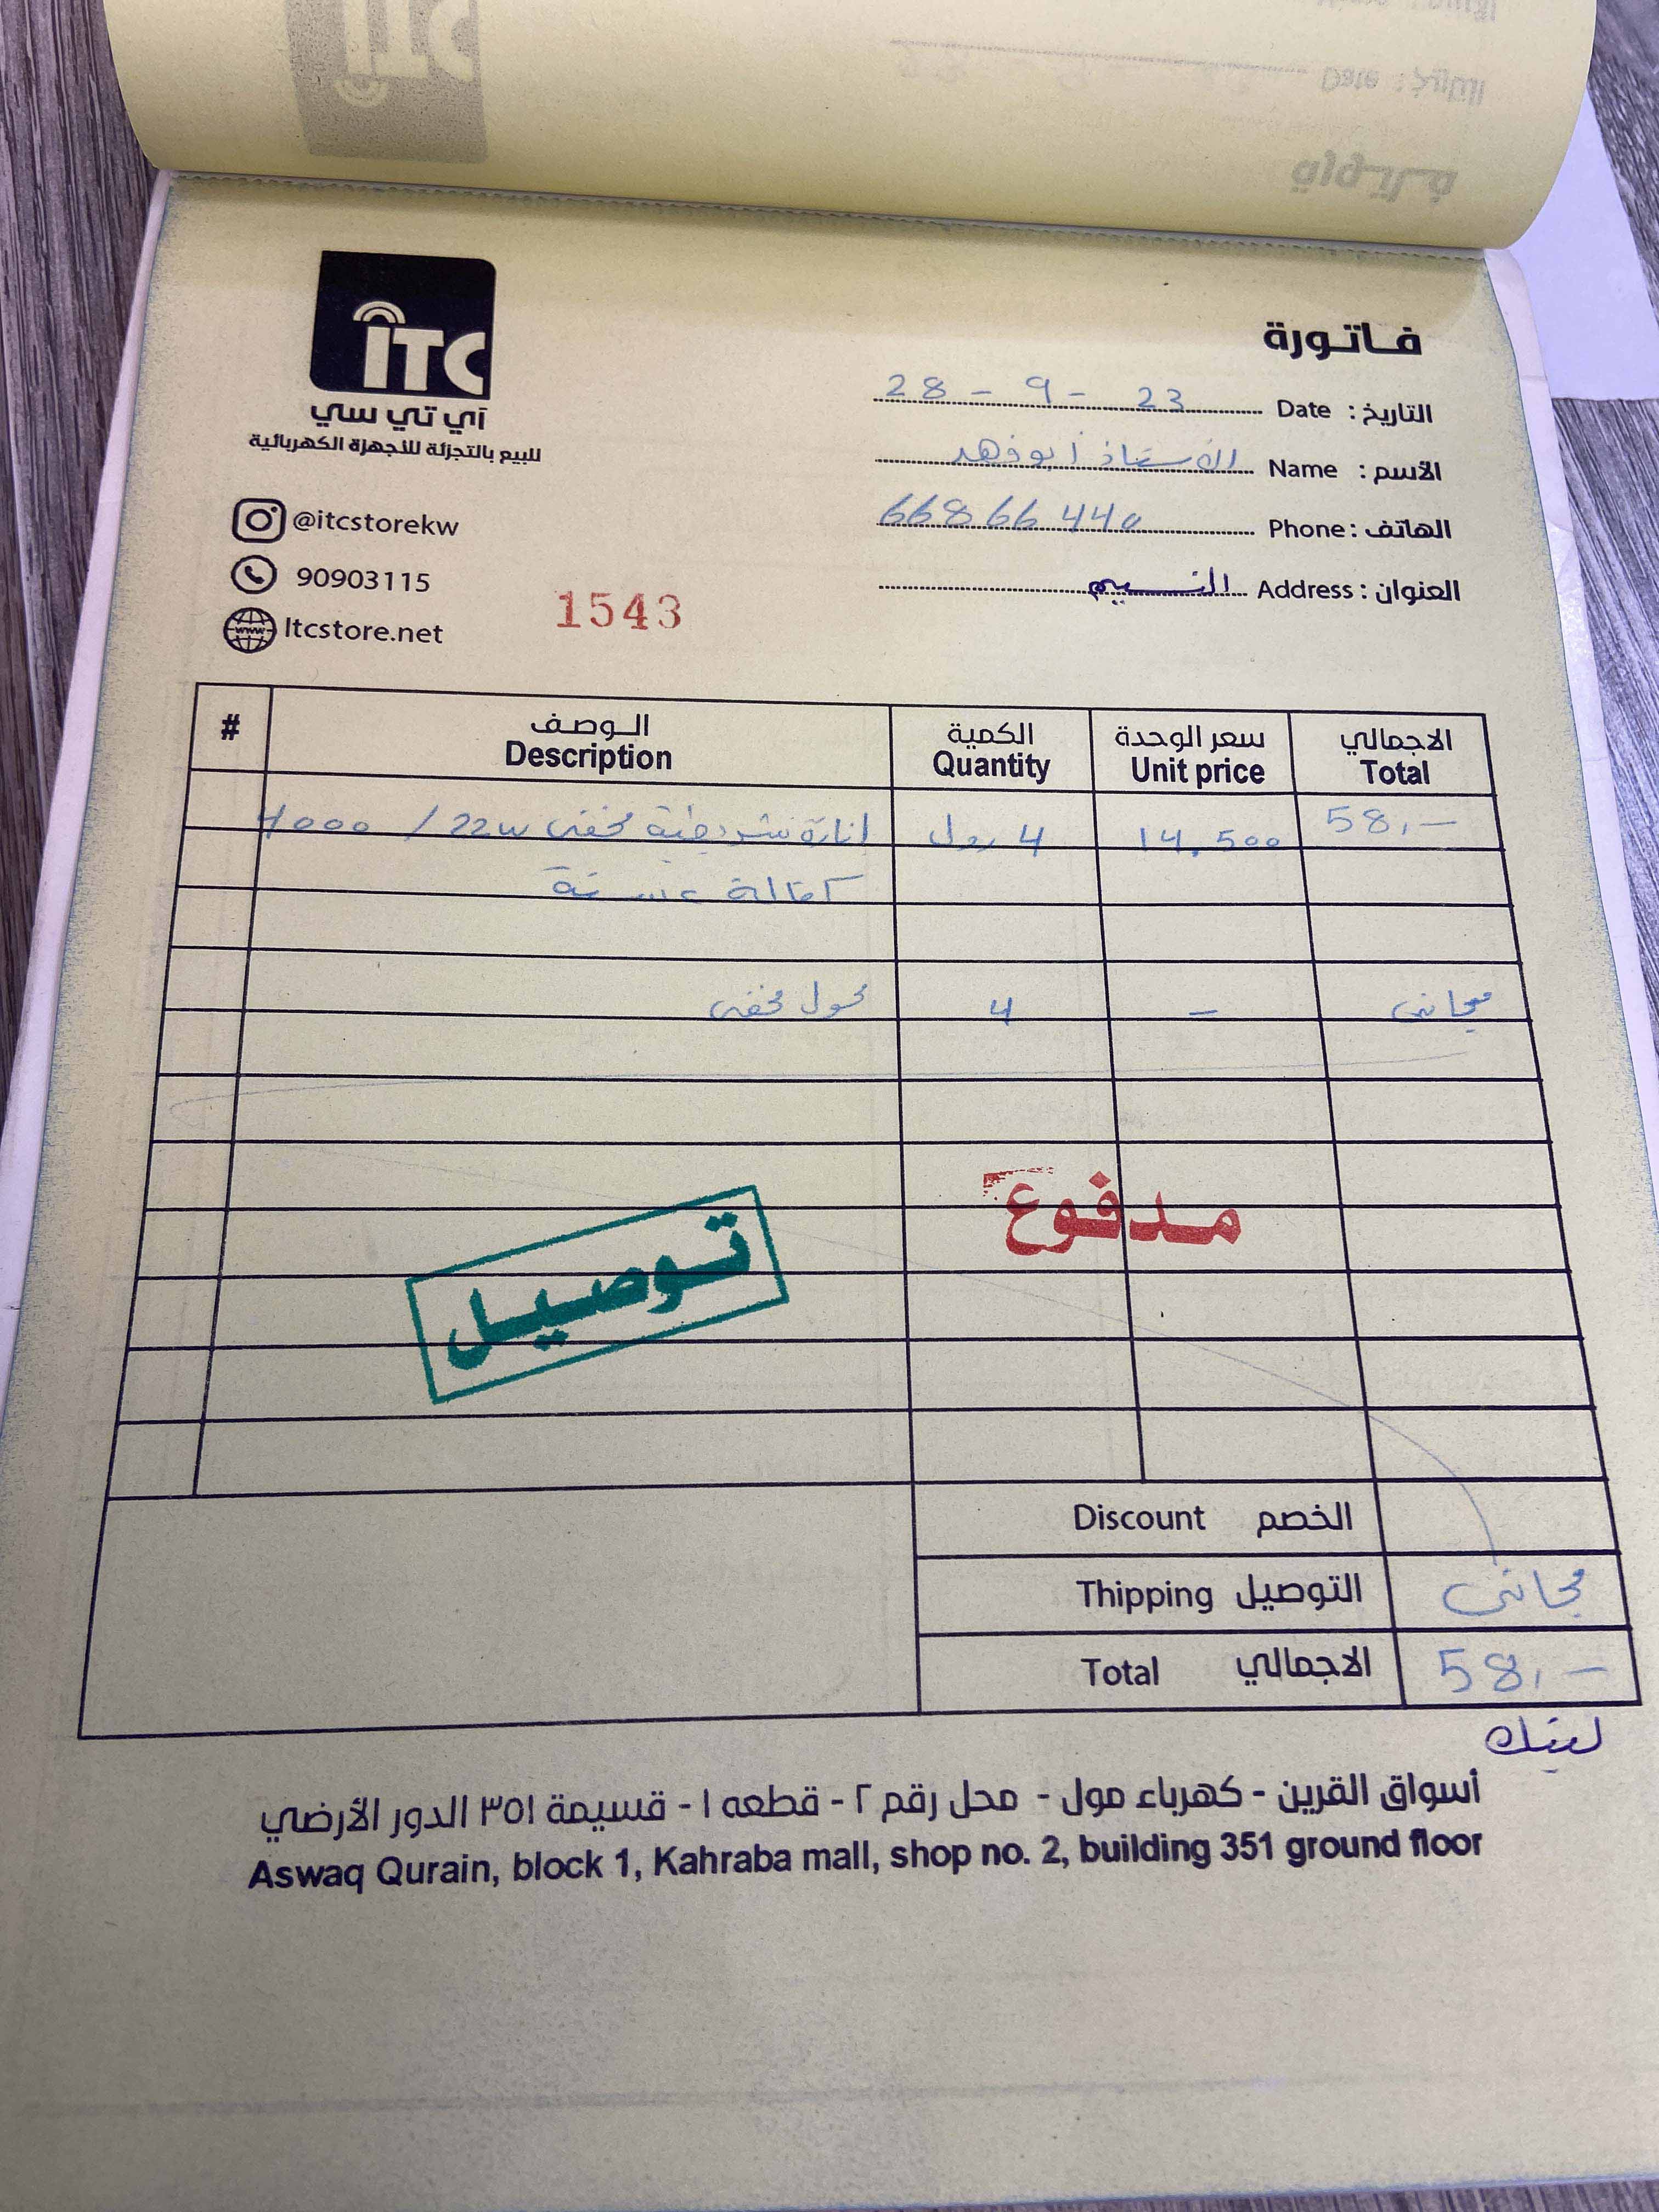 ITC
آي تي سي
للبيع بالتجزئة للأجهزة الكهربائية
@itcstorekw
90903115
www
Itcstore.net
1543
فاتورة
التاريخ: Date 28 - 9 - 23
الأسم: Name الاستاذ أبو فهد
الهاتف: Phone 66866440
العنوان: Address النسيم
# الوصف الكمية سعر الوحدة الاجمالي
Description Quantity Unit price Total
انارة شريطية مخفي 22w / 4000 4 رول 14.500 58,-
كفالة سنة
محول مخفي 4 - مجاني
مدفوع
توصيل
Discount الخصم
Thipping التوصيل مجاني
Total الاجمالي 58,-
أسواق القرين - كهرباء مول - محل رقم ٢ - قطعه ١ - قسيمة ٣٥١ الدور الأرضي
Aswaq Qurain, block 1, Kahraba mall, shop no. 2, building 351 ground floor